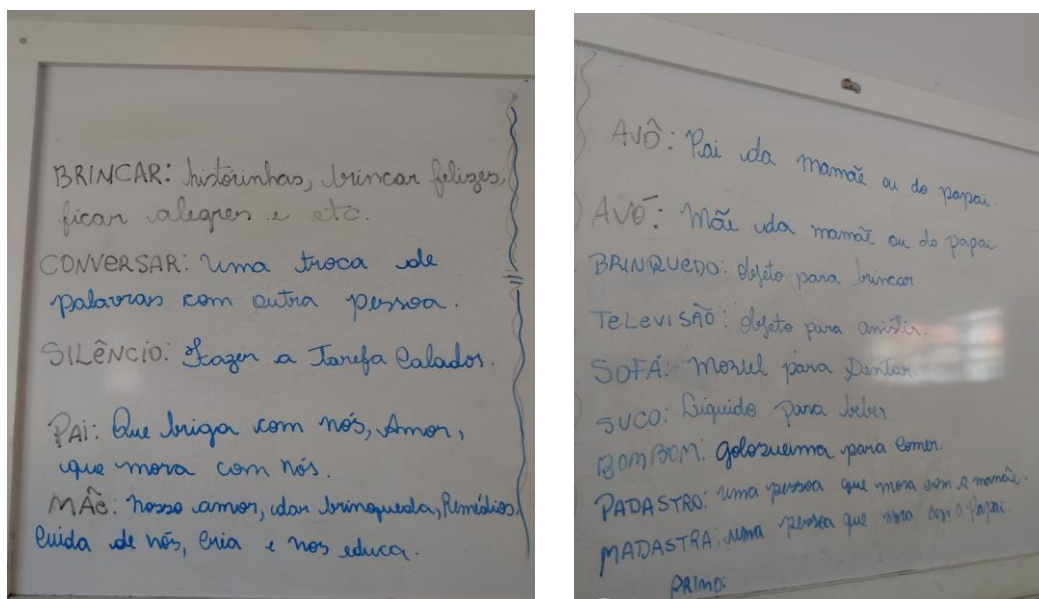 BRINCAR: historinhas, brincar felizes,
ficar alegres e etc.
CONVERSAR: Uma troca de
palavras com outra pessoa.
SILÊNCIO: Fazer a Tarefa Calados.
PAI: Que briga com nós, Amor,
que mora com nós.
MÃE: nosso amor, dar brinqueda, Remédios.
Cuida de nós, Cria e nos educa.
AVÔ: Pai da mamãe ou do papai.
AVÓ: Mãe da mamãe ou do papai
BRINQUEDO: objeto para brincar.
TELEVISÃO: objeto para assistir.
SOFÁ: Movel para Sentar.
SUCO: Liquido para beber
BOMBOM: golozueima para Comer.
PADASTRO: uma pessoa que mora com a mamãe.
MADASTRA: uma pessoa que mora com o Papai.
PRIMO: